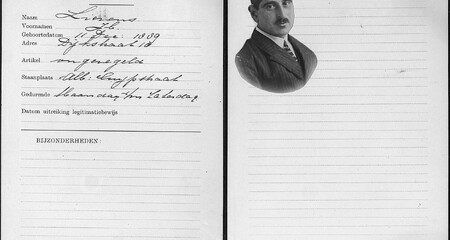 Naam Lierens
Voornamen
Geboortedatum 11 Dec 1889
Adres Dijkstraat 18
Artikel ongeregelde
Staanplaats Alb: Cuijpstraat
Gedurende Maandag t/m Zaterdag
Datum uitreiking legitimatiebewijs
BIJZONDERHEDEN: